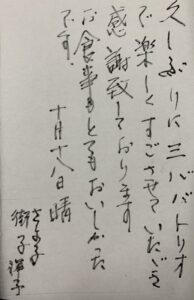 久しぶりに三ババトリオ
で楽しくすごさせていたゞき
感謝致しております
お食事もとてもおいしかった
です。
十月十八日 晴
さよ子
街子 洋子